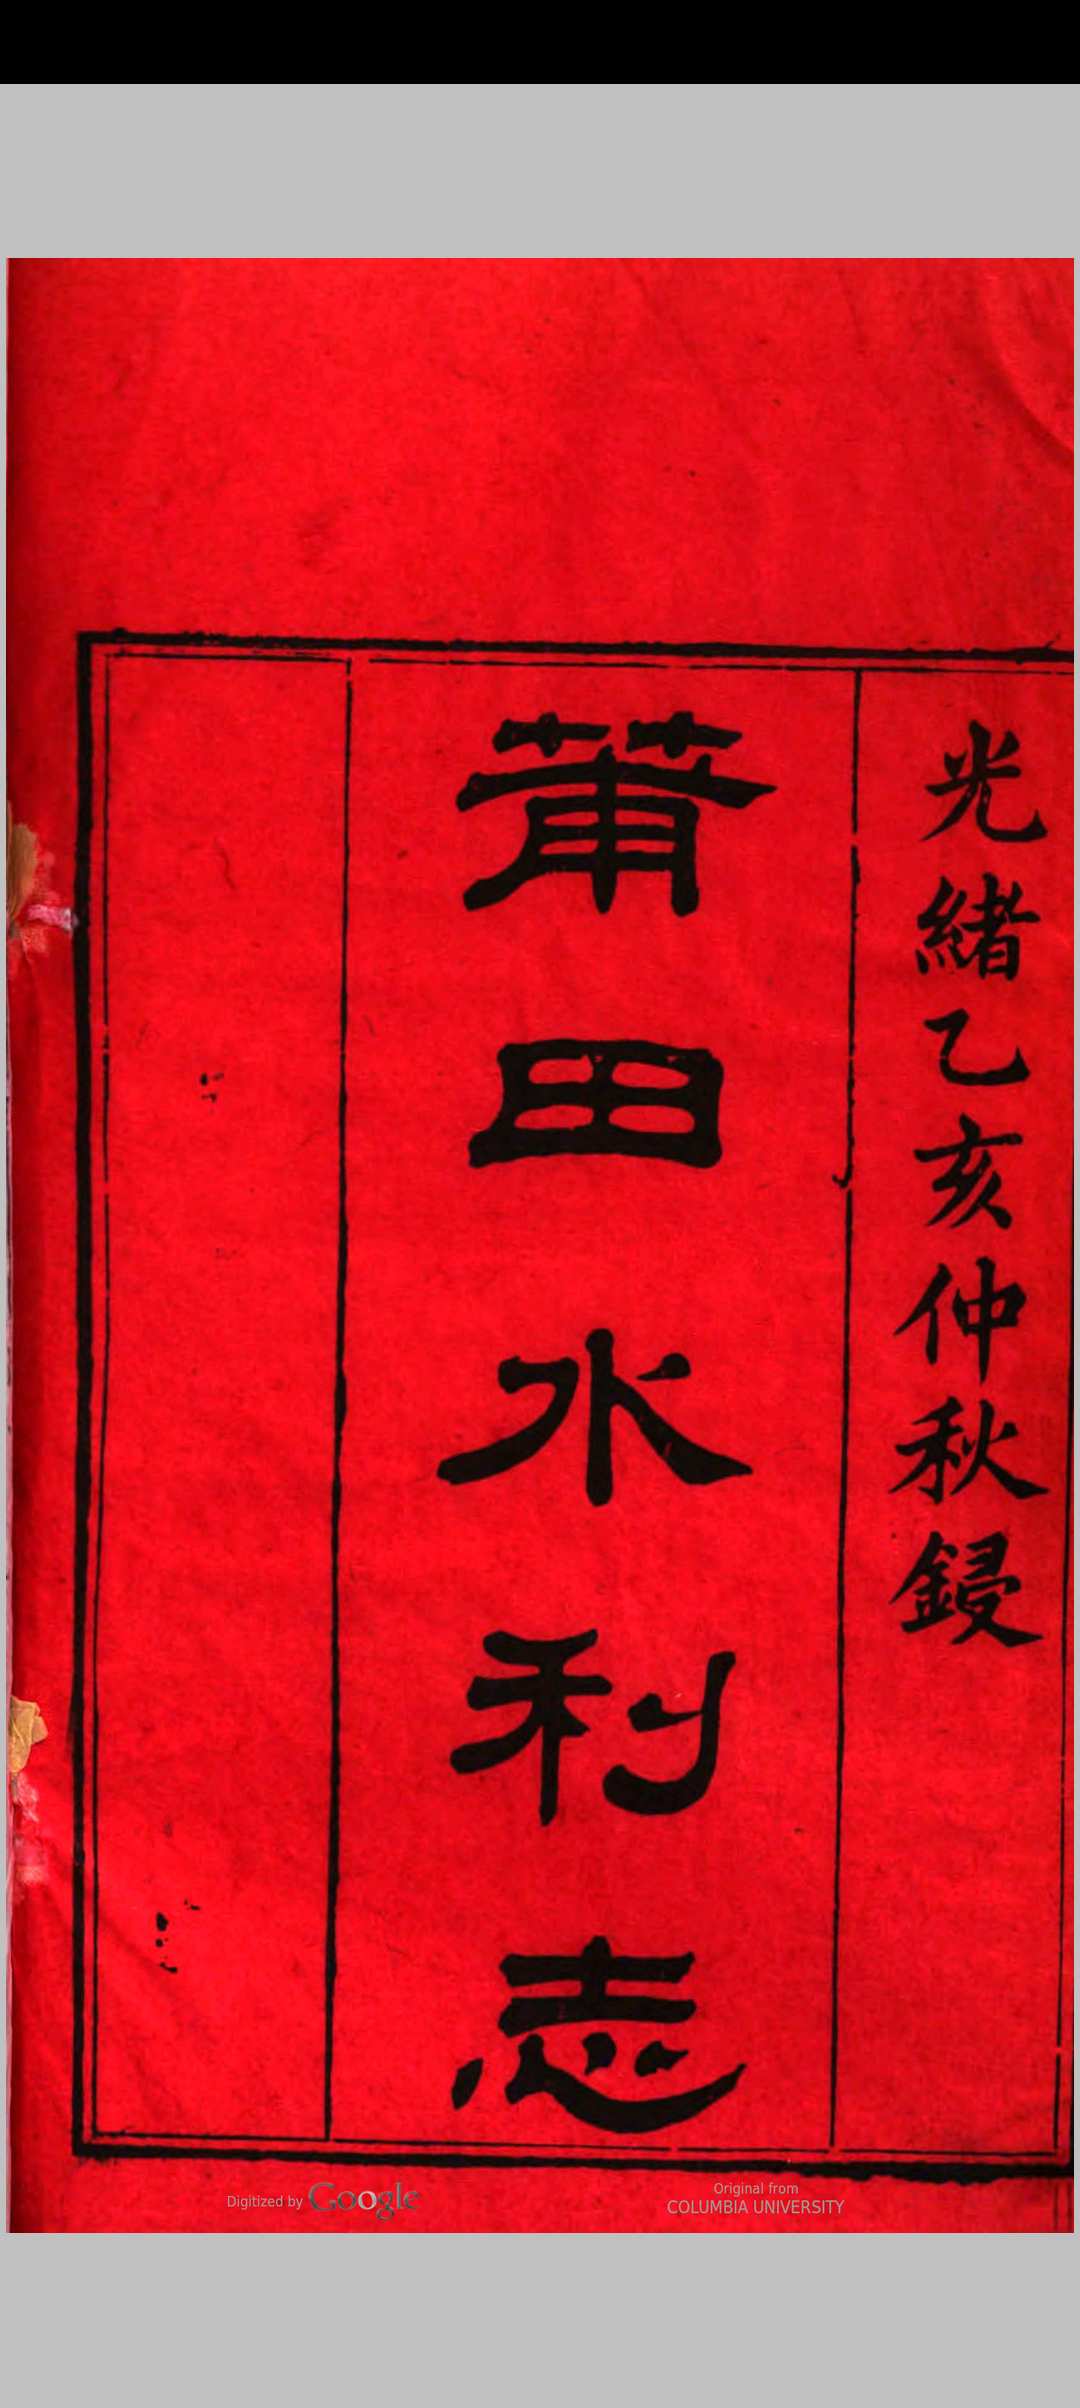 光緒乙亥仲秋鋟
莆田水利志
Digitized by Google
Original from
COLUMBIA UNIVERSITY